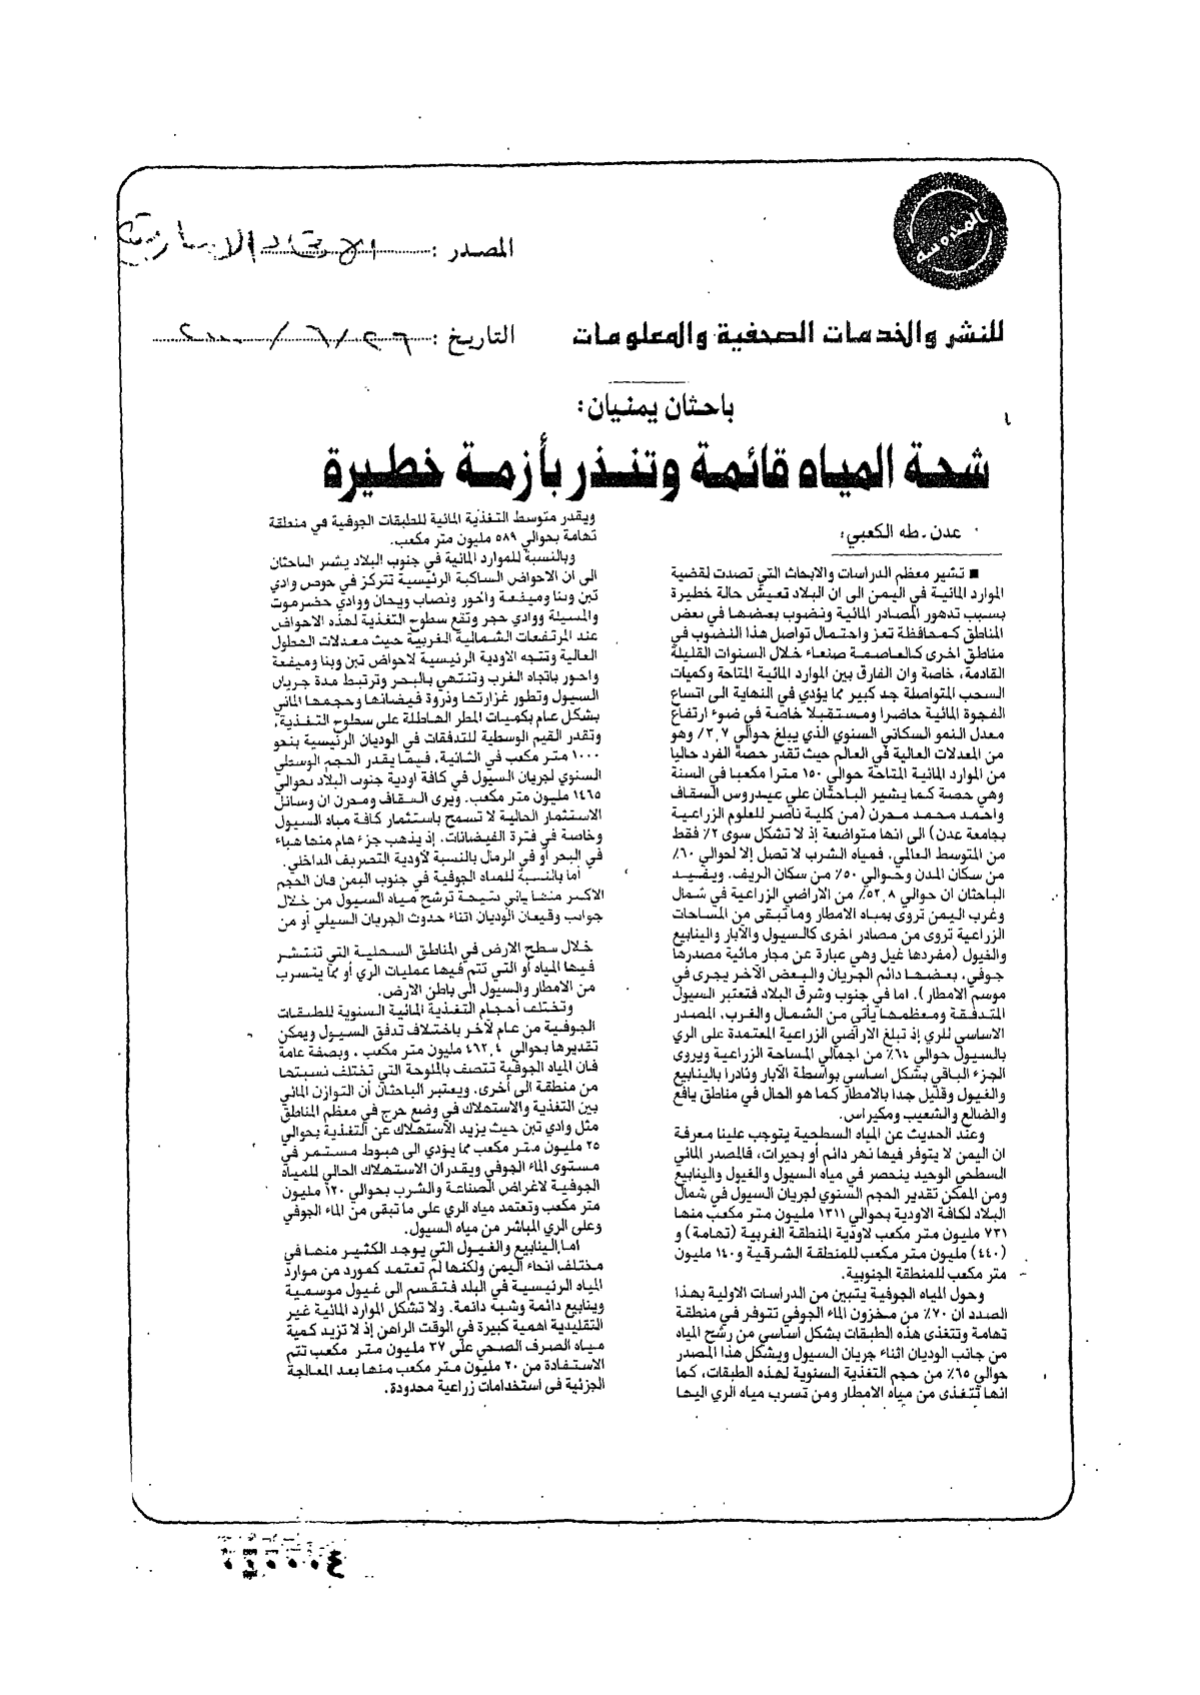 المصدر : الاتحاد الاماراتية
للنشر والخدمات الصحفية والمعلومات
التاريخ : ٢٦/٦/٢٠٠٠
باحثان يمنيان:
شحة المياه قائمة وتنذر بأزمة خطيرة
عدن ـ طه الكعبي:
■ تشير معظم الدراسات والابحاث التي تصدت لقضية
الموارد المائية في اليمن الى ان البلاد تعيش حالة خطيرة
بسبب تدهور المصادر المائية ونضوب بعضها في بعض
المناطق كمحافظة تعز واحتمال تواصل هذا النضوب في
مناطق اخرى كالعاصمة صنعاء خلال السنوات القليلة
القادمة، خاصة وان الفارق بين الموارد المائية المتاحة وكميات
السحب المتواصلة جد كبير مما يؤدي في النهاية الى اتساع
الفجوة المائية حاضرا ومستقبلا خاصة في ضوء ارتفاع
معدل النمو السكاني السنوي الذي يبلغ حوالي ٣,٧٪ وهو
من المعدلات العالية في العالم حيث تقدر حصة الفرد حاليا
من الموارد المائية المتاحة حوالي ١٥٠ مترا مكعبا في السنة
وهي حصة كما يشير الباحثان علي عيدروس السقاف
واحمد محمد محرن (من كلية ناصر للعلوم الزراعية
بجامعة عدن) الى انها متواضعة إذ لا تشكل سوى ٢٪ فقط
من المتوسط العالمي. فمياه الشرب لا تصل إلا لحوالي ٦٠٪
من سكان المدن وحوالي ٥٠٪ من سكان الريف. ويفيد
الباحثان ان حوالي ٥٢,٨٪ من الاراضي الزراعية في شمال
وغرب اليمن تروى بمياه الامطار وما تبقى من المساحات
الزراعية تروى من مصادر اخرى كالسيول والآبار والينابيع
والغيول (مفردها غيل وهي عبارة عن مجار مائية مصدرها
جوفي، بعضها دائم الجريان والبعض الآخر يجرى في
موسم الامطار). اما في جنوب وشرق البلاد فتعتبر السيول
المتدفقة ومعظمها يأتي من الشمال والغرب، المصدر
الاساسي للري إذ تبلغ الاراضي الزراعية المعتمدة على الري
بالسيول حوالي ٦٤٪ من اجمالي المساحة الزراعية ويروى
الجزء الباقي بشكل اساسي بواسطة الآبار ونادرا بالينابيع
والغيول وقليل جدا بالامطار كما هو الحال في مناطق يافع
والضالع والشعيب ومكيراس.
وعند الحديث عن المياه السطحية يتوجب علينا معرفة
ان اليمن لا يتوفر فيها نهر دائم أو بحيرات، فالمصدر المائي
السطحي الوحيد ينحصر في مياه السيول والغيول والينابيع
ومن الممكن تقدير الحجم السنوي لجريان السيول في شمال
البلاد لكافة الاودية بحوالي ١٣١١ مليون متر مكعب منها
٧٣١ مليون متر مكعب لاودية المنطقة الغربية (تهامة) و
(٤٤٠) مليون متر مكعب للمنطقة الشرقية و١٤٠ مليون
متر مكعب للمنطقة الجنوبية.
وحول المياه الجوفية يتبين من الدراسات الاولية بهذا
الصدد ان ٧٠٪ من مخزون الماء الجوفي تتوفر في منطقة
تهامة وتتغذى هذه الطبقات بشكل أساسي من رشح المياه
من جانب الوديان اثناء جريان السيول ويشكل هذا المصدر
حوالي ٦٥٪ من حجم التغذية السنوية لهذه الطبقات، كما
انها تتغذى من مياه الامطار ومن تسرب مياه الري اليها
ويقدر متوسط التغذية المائية للطبقات الجوفية في منطقة
تهامة بحوالي ٥٨٩ مليون متر مكعب.
وبالنسبة للموارد المائية في جنوب البلاد يشير الباحثان
الى ان الاحواض الساكبة الرئيسية تتركز في حوض وادي
تبن وبنا وميفعة واحور ونصاب وبيحان ووادي حضرموت
والمسيلة ووادي حجر وتقع سطوح التغذية لهذه الاحواض
عند المرتفعات الشمالية الغربية حيث معدلات الهطول
العالية وتتجه الاودية الرئيسية لاحواض تبن وبنا وميفعة
واحور باتجاه الغرب وتنتهي بالبحر وترتبط مدة جريان
السيول وتطور غزارتها وذروة فيضانها وحجمها المائي
بشكل عام بكميات المطر الهاطلة على سطوح التغذية،
وتقدر القيم الوسطية للتدفقات في الوديان الرئيسية بنحو
١٠٠٠ متر مكعب في الثانية، فيما يقدر الحجم الوسطي
السنوي لجريان السيول في كافة اودية جنوب البلاد بحوالي
١٤٦٥ مليون متر مكعب. ويرى السقاف ومحرن ان وسائل
الاستثمار الحالية لا تسمح باستثمار كافة مياه السيول
وخاصة في فترة الفيضانات. إذ يذهب جزء هام منها هباء
في البحر أو في الرمال بالنسبة لأودية التصريف الداخلي.
أما بالنسبة للمياه الجوفية في جنوب اليمن فان الحجم
الاكبر منها يأتي نتيجة ترشح مياه السيول من خلال
جوانب وقيعان الوديان اثناء حدوث الجريان السيلي أو من
خلال سطح الارض في المناطق السهلية التي تنتشر
فيها المياه أو التي تتم فيها عمليات الري أو مما يتسرب
من الامطار والسيول الى باطن الارض.
وتختلف أحجام التغذية المائية السنوية للطبقات
الجوفية من عام لآخر باختلاف تدفق السيول ويمكن
تقديرها بحوالي ٤٦٢,٤ مليون متر مكعب ، وبصفة عامة
فان المياه الجوفية تتصف بالملوحة التي تختلف نسبتها
من منطقة الى أخرى. ويعتبر الباحثان أن التوازن المائي
بين التغذية والاستهلاك في وضع حرج في معظم المناطق
مثل وادي تبن حيث يزيد الاستهلاك عن التغذية بحوالي
٢٥ مليون متر مكعب مما يؤدي الى هبوط مستمر في
مستوى الماء الجوفي ويقدران الاستهلاك الحالي للمياه
الجوفية لاغراض الصناعة والشرب بحوالي ١٢٠ مليون
متر مكعب وتعتمد مياه الري على ما تبقى من الماء الجوفي
وعلى الري المباشر من مياه السيول.
اما الينابيع والغيول التي يوجد الكثير منها في
مختلف انحاء اليمن ولكنها لم تعتمد كمورد من موارد
المياه الرئيسية في البلد فتنقسم الى غيول موسمية
وينابيع دائمة وشبه دائمة. ولا تشكل الموارد المائية غير
التقليدية اهمية كبيرة في الوقت الراهن إذ لا تزيد كمية
مياه الصرف الصحي على ٣٧ مليون متر مكعب تتم
الاستفادة من ٢٠ مليون متر مكعب منها بعد المعالجة
الجزئية في استخدامات زراعية محدودة.